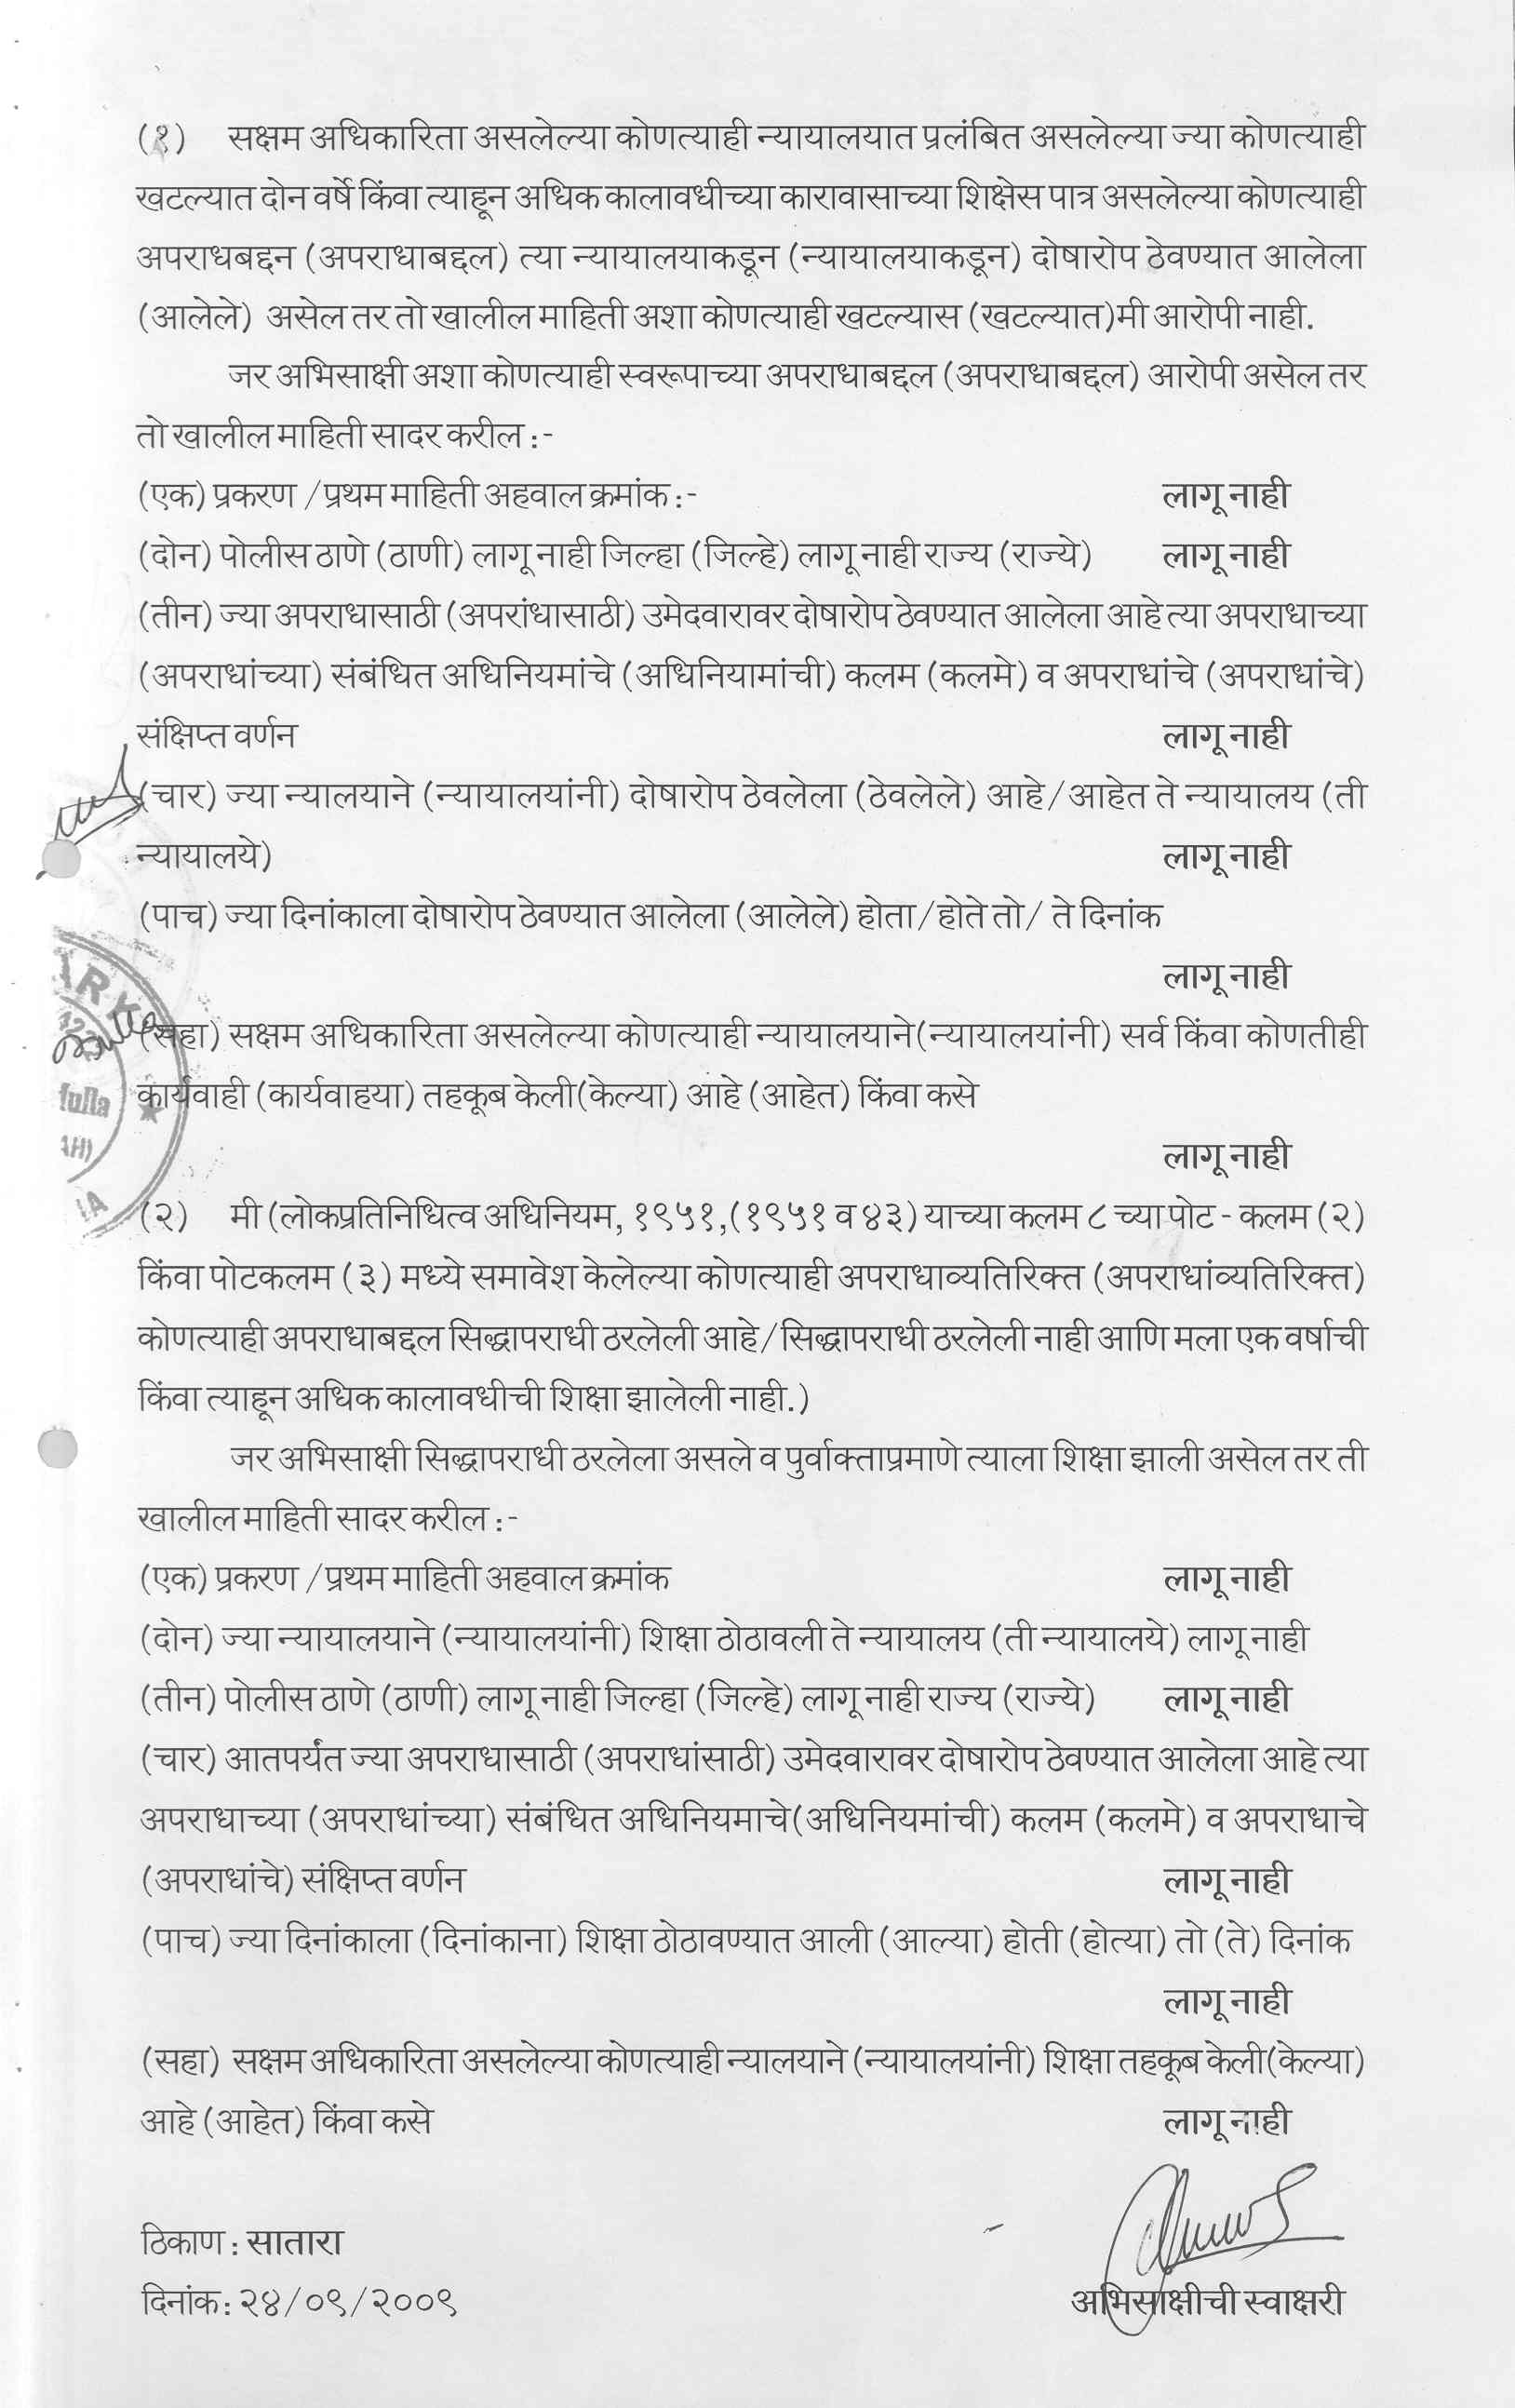 (१) सक्षम अधिकारिता असलेल्या कोणत्याही न्यायालयात प्रलंबित असलेल्या ज्या कोणत्याही
खटल्यात दोन वर्षे किंवा त्याहून अधिक कालावधीच्या कारावासाच्या शिक्षेस पात्र असलेल्या कोणत्याही
अपराधबद्दन (अपराधाबद्दल) त्या न्यायालयाकडून (न्यायालयाकडून) दोषारोप ठेवण्यात आलेला
(आलेले) असेल तर तो खालील माहिती अशा कोणत्याही खटल्यास (खटल्यात)मी आरोपी नाही.
जर अभिसाक्षी अशा कोणत्याही स्वरूपाच्या अपराधाबद्दल (अपराधाबद्दल) आरोपी असेल तर
तो खालील माहिती सादर करील :-
(एक) प्रकरण /प्रथम माहिती अहवाल क्रमांक :- लागू नाही
(दोन) पोलीस ठाणे (ठाणी) लागू नाही जिल्हा (जिल्हे) लागू नाही राज्य (राज्ये) लागू नाही
(तीन) ज्या अपराधासाठी (अपरांधासाठी) उमेदवारावर दोषारोप ठेवण्यात आलेला आहे त्या अपराधाच्या
(अपराधांच्या) संबंधित अधिनियमांचे (अधिनियामांची) कलम (कलमे) व अपराधांचे (अपराधांचे)
संक्षिप्त वर्णन लागू नाही
(चार) ज्या न्यालयाने (न्यायालयांनी) दोषारोप ठेवलेला (ठेवलेले) आहे/आहेत ते न्यायालय (ती
न्यायालये) लागू नाही
(पाच) ज्या दिनांकाला दोषारोप ठेवण्यात आलेला (आलेले) होता/होते तो/ ते दिनांक
लागू नाही
(सहा) सक्षम अधिकारिता असलेल्या कोणत्याही न्यायालयाने(न्यायालयांनी) सर्व किंवा कोणतीही
कार्यवाही (कार्यवाहया) तहकूब केली(केल्या) आहे (आहेत) किंवा कसे
लागू नाही
(२) मी (लोकप्रतिनिधित्व अधिनियम, १९५१,(१९५१ व ४३) याच्या कलम ८ च्या पोट - कलम (२)
किंवा पोटकलम (३) मध्ये समावेश केलेल्या कोणत्याही अपराधाव्यतिरिक्त (अपराधांव्यतिरिक्त)
कोणत्याही अपराधाबद्दल सिद्धापराधी ठरलेली आहे/सिद्धापराधी ठरलेली नाही आणि मला एक वर्षाची
किंवा त्याहून अधिक कालावधीची शिक्षा झालेली नाही.)
जर अभिसाक्षी सिद्धापराधी ठरलेला असले व पुर्वाक्ताप्रमाणे त्याला शिक्षा झाली असेल तर ती
खालील माहिती सादर करील :-
(एक) प्रकरण /प्रथम माहिती अहवाल क्रमांक लागू नाही
(दोन) ज्या न्यायालयाने (न्यायालयांनी) शिक्षा ठोठावली ते न्यायालय (ती न्यायालये) लागू नाही
(तीन) पोलीस ठाणे (ठाणी) लागू नाही जिल्हा (जिल्हे) लागू नाही राज्य (राज्ये) लागू नाही
(चार) आतपर्यंत ज्या अपराधासाठी (अपराधांसाठी) उमेदवारावर दोषारोप ठेवण्यात आलेला आहे त्या
अपराधाच्या (अपराधांच्या) संबंधित अधिनियमाचे(अधिनियमांची) कलम (कलमे) व अपराधाचे
(अपराधांचे) संक्षिप्त वर्णन लागू नाही
(पाच) ज्या दिनांकाला (दिनांकाना) शिक्षा ठोठावण्यात आली (आल्या) होती (होत्या) तो (ते) दिनांक
लागू नाही
(सहा) सक्षम अधिकारिता असलेल्या कोणत्याही न्यालयाने (न्यायालयांनी) शिक्षा तहकूब केली(केल्या)
आहे (आहेत) किंवा कसे लागू नाही
ठिकाण : सातारा
दिनांक : २४/०९/२००९ अभिसाक्षीची स्वाक्षरी